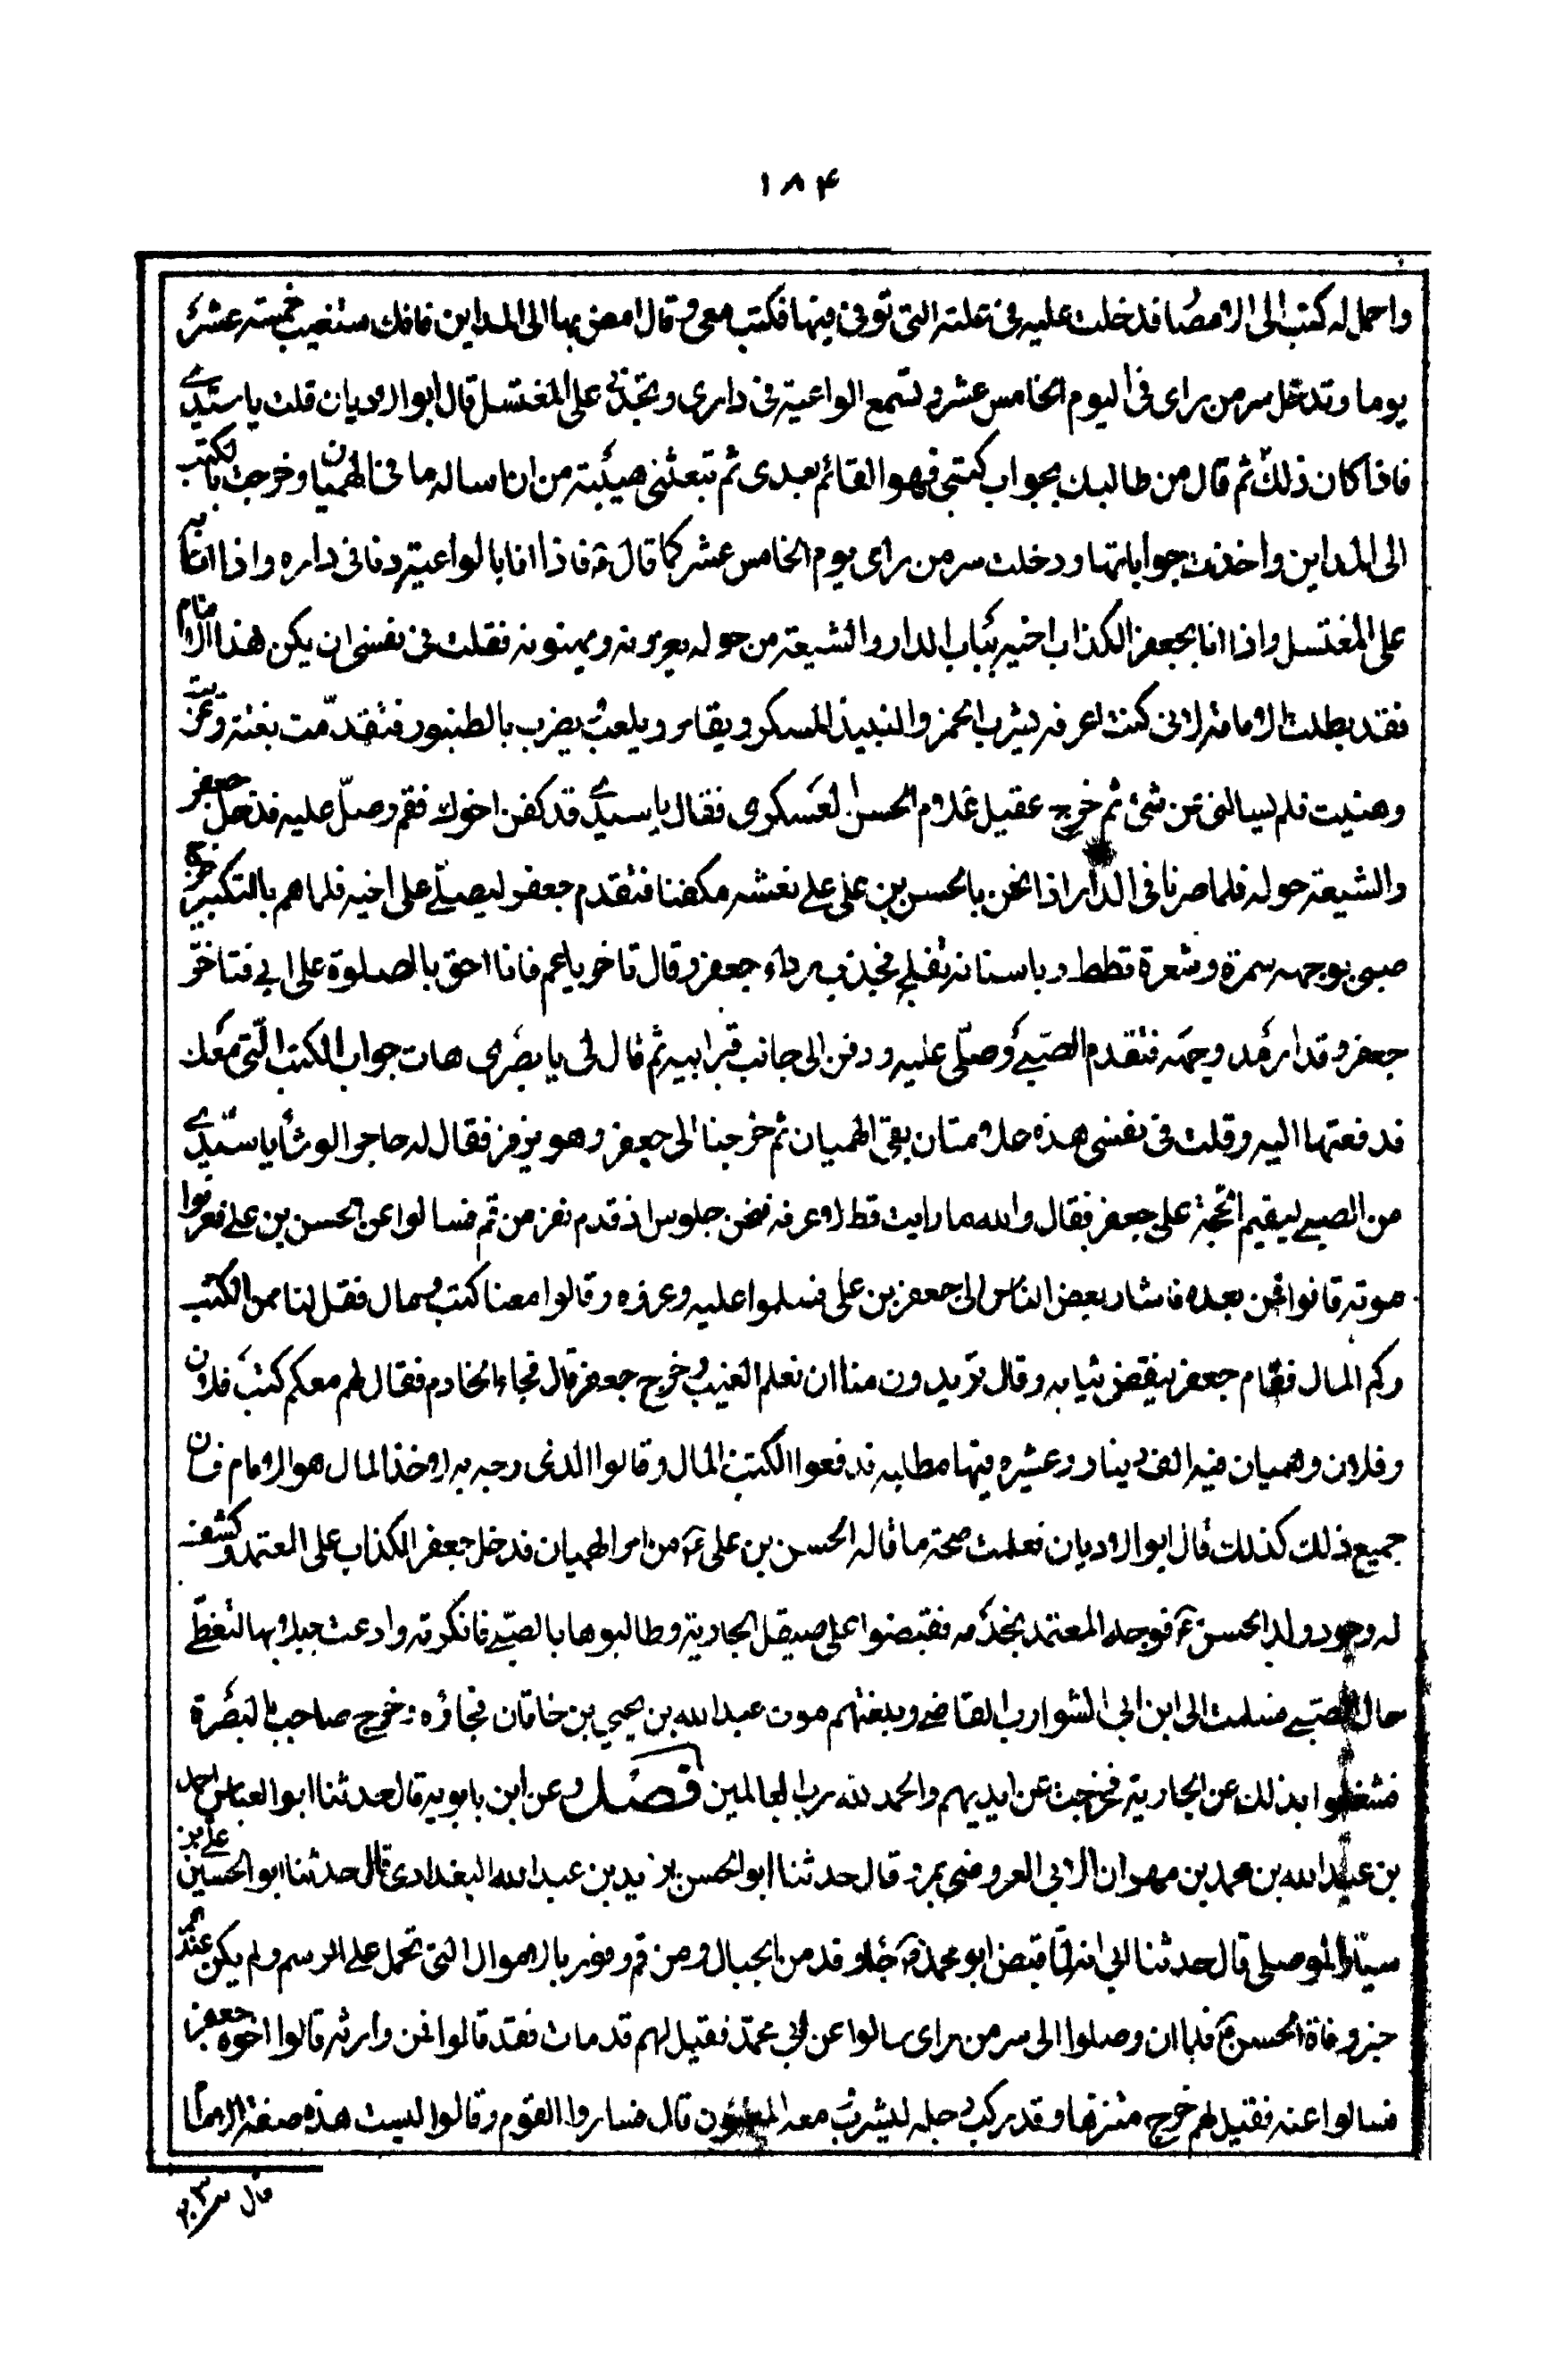 ۱۸۴
واحمل له كتبا الى الامصا فدخلت عليه فى علته التى توفى فيها فكتب معى و قال امض بها الى المداين فانك ستغيب خمسة عشر
يوما وتدخل سر من راى فى اليوم الخامس عشر و تسمع الواعية فى دارى و تجدنى على المغتسل قال ابوالاديان قلت يا سيدى
فاذا كان ذلك ثم قال من طالبك بجواب كتبى فهو القائم بعدى ثم تبعثنى هيبته من ان اساله ما فى الهميان وخرجت بالكتب
الى المداين واخذت جواباتها ودخلت سر من راى يوم الخامس عشر كما قال ع فاذا انا بالواعية فى داره واذا انا به
على المغتسل واذا انا بجعفر الكذاب اخيه بباب الدار والشيعة من حوله يعزونه ويهنونه فقلت فى نفسى ان يكن هذا الامام
فقد بطلت الامامة لانى كنت اعرفه يشرب الخمر والنبيذ المسكر ويقامر ويلعب يضرب بالطنبور فتقدّمت بغتة وعزيت
وهنيت فلم يسالنى عن شئ ثم خرج عقيل غلام الحسن العسكرى فقال يا سيدى قد كفن اخوك فقم وصلّ عليه فدخل جعفر
والشيعة حوله فلما صرنا فى الدار اذا نحن بالحسن بن على على نعشه مكفنا فتقدم جعفر ليصلّى على اخيه فلما هم بالتكبير خرج
صبى بوجهه سمرة وشعرة قطط وباسنانه تفليج فجذب رداء جعفر وقال تاخر يا عم فانا احق بالصلوة على ابى فتاخّر
جعفر وقد اربد وجهه فتقدم الصبى وصلّى عليه ودفن الى جانب قبر ابيه ثم قال لى يا بصرى هات جواب الكتب الّتى معك
فدفعتها اليه وقلت فى نفسى هذه علامتان بقى الهميان ثم خرجنا الى جعفر وهو يزفر فقال له حاجر الوشّا يا سيّدى
من الصبى ليقيم الحجة على جعفر فقال والله ما رايت قط لا اعرفه فنحن جلوس اذ قدم نفر من قم فسالوا عن الحسن بن على فعرفوا
موته قالوا فمن بعده فاشار بعض الناس الى جعفر بن على فسلموا عليه وعزوه وقالوا معنا كتب و مال فقل لنا ممن الكتب
وكم المال فقام جعفر ينفض ثيابه وقال تريدون منا ان نعلم الغيب و خرج جعفر قال فجاء الخادم فقال لهم معكم كتب فلان
وفلان وهميان فيه الف دينار وعشرة فيها مطلية فدفعوا الكتب المال وقالوا الذى وجه به لاخذ المال هو الامام فان
جميع ذلك كذلك قال ابوالاديان فعلمت صحة ما قاله الحسن بن على ع من امر الهميان فدخل جعفر الكذاب على المعتمد وكشف
له وجود ولد الحسن ع فوجه المعتمد بخدمه فقبضوا على صيقل الجارية وطالبوها بالصبّى فانكرته وادعت حبلا بها لتغطّى
حال الصبّى فسلمت الى ابن ابى الشوارب القاضى وبلغتهم موت عبدالله بن يحيى بن خاقان فجاؤه و خرج صاحب البصرة
فشغلوا بذلك عن الجارية فخرجت عن ايديهم والحمد لله رب العالمين فصل و عن ابن بابويه قال حدثنا ابو العباس احمد
بن عبدالله بن محمد بن مهران الابى العروضى بمرو قال حدثنا ابو الحسن بن زيد بن عبدالله البغدادى قال حدثنا ابو الحسين على بن
سيّار الموصلى قال حدثنا ابى انه لمّا قبض ابو محمد ع جاء وفد من الجبال و من قم وفود بالاموال التى تحمل على الرسم ولم يكن عندهم
خبر وفاة الحسن ع فلما ان وصلوا الى سر من راى سالوا عن ابى محمّد فقيل لهم قد مات فقد قالوا فمن وارثه قالوا اخوه جعفر
فسالوا عنه فقيل لهم خرج متنزها وقد ركب دجله ليشرب معه المغنيون قال فساروا القوم وقالوا ليست هذه صفة الامام